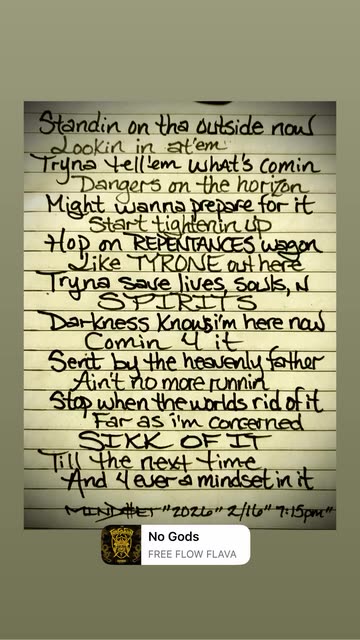 Standin on tha outside now
Lookin in at'em
Tryna tell'em what's comin
Dangers on the horizon
Might wanna prepare for it
Start tightenin up
Hop on REPENTANCES wagon
Like TYRONE out here
Tryna save lives, souls, N
SPIRITS
Darkness knows i'm here now
Comin 4 it
Sent by the heavenly father
Ain't no more runnin
Stop when the worlds rid of it
Far as i'm concerned
SIKK OF IT
Till the next time
And 4 ever a mindset in it
MIND$ET "2026" 2/16" 7:15pm"
No Gods
FREE FLOW FLAVA